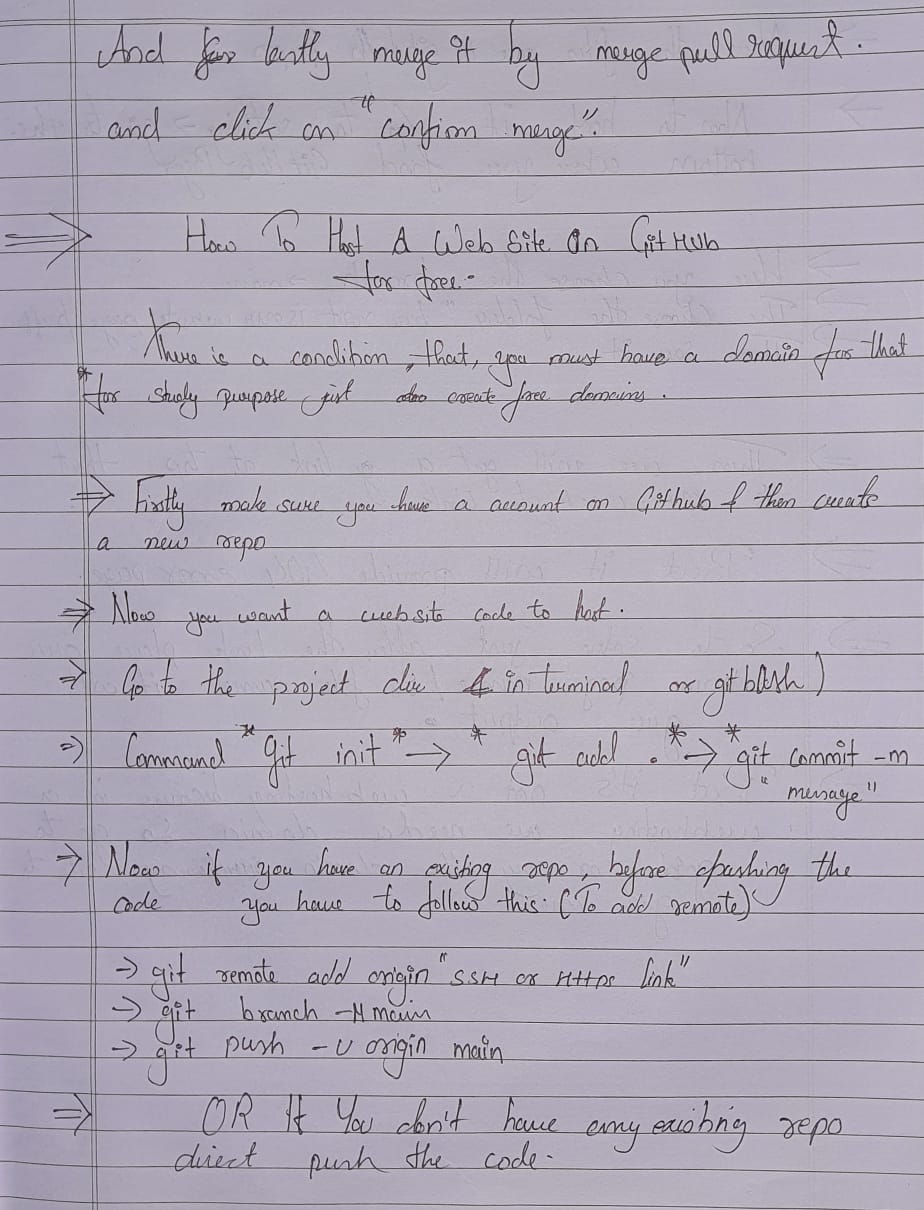 And for lastly merge it by merge pull request.
and click on "confirm merge".
⇒ How To Host A Web Site On GitHub
for free.
There is a condition, that, you must have a domain for that
* for study purpose just create free domains.
⇒ Firstly make sure you have a account on Github & then create
a new repo
⇒ Now you want a website code to host.
⇒ Go to the project dir ( in terminal or git bash)
⇒ Command * git init * → * git add . * → * git commit -m
"message"
⇒ Now if you have an existing repo, before pushing the
code you have to follow this. (To add remote)
→ git remote add origin "SSH or HTTPS link"
→ git branch -M main
→ git push -u origin main
⇒ OR If You don't have any existing repo
direct push the code.